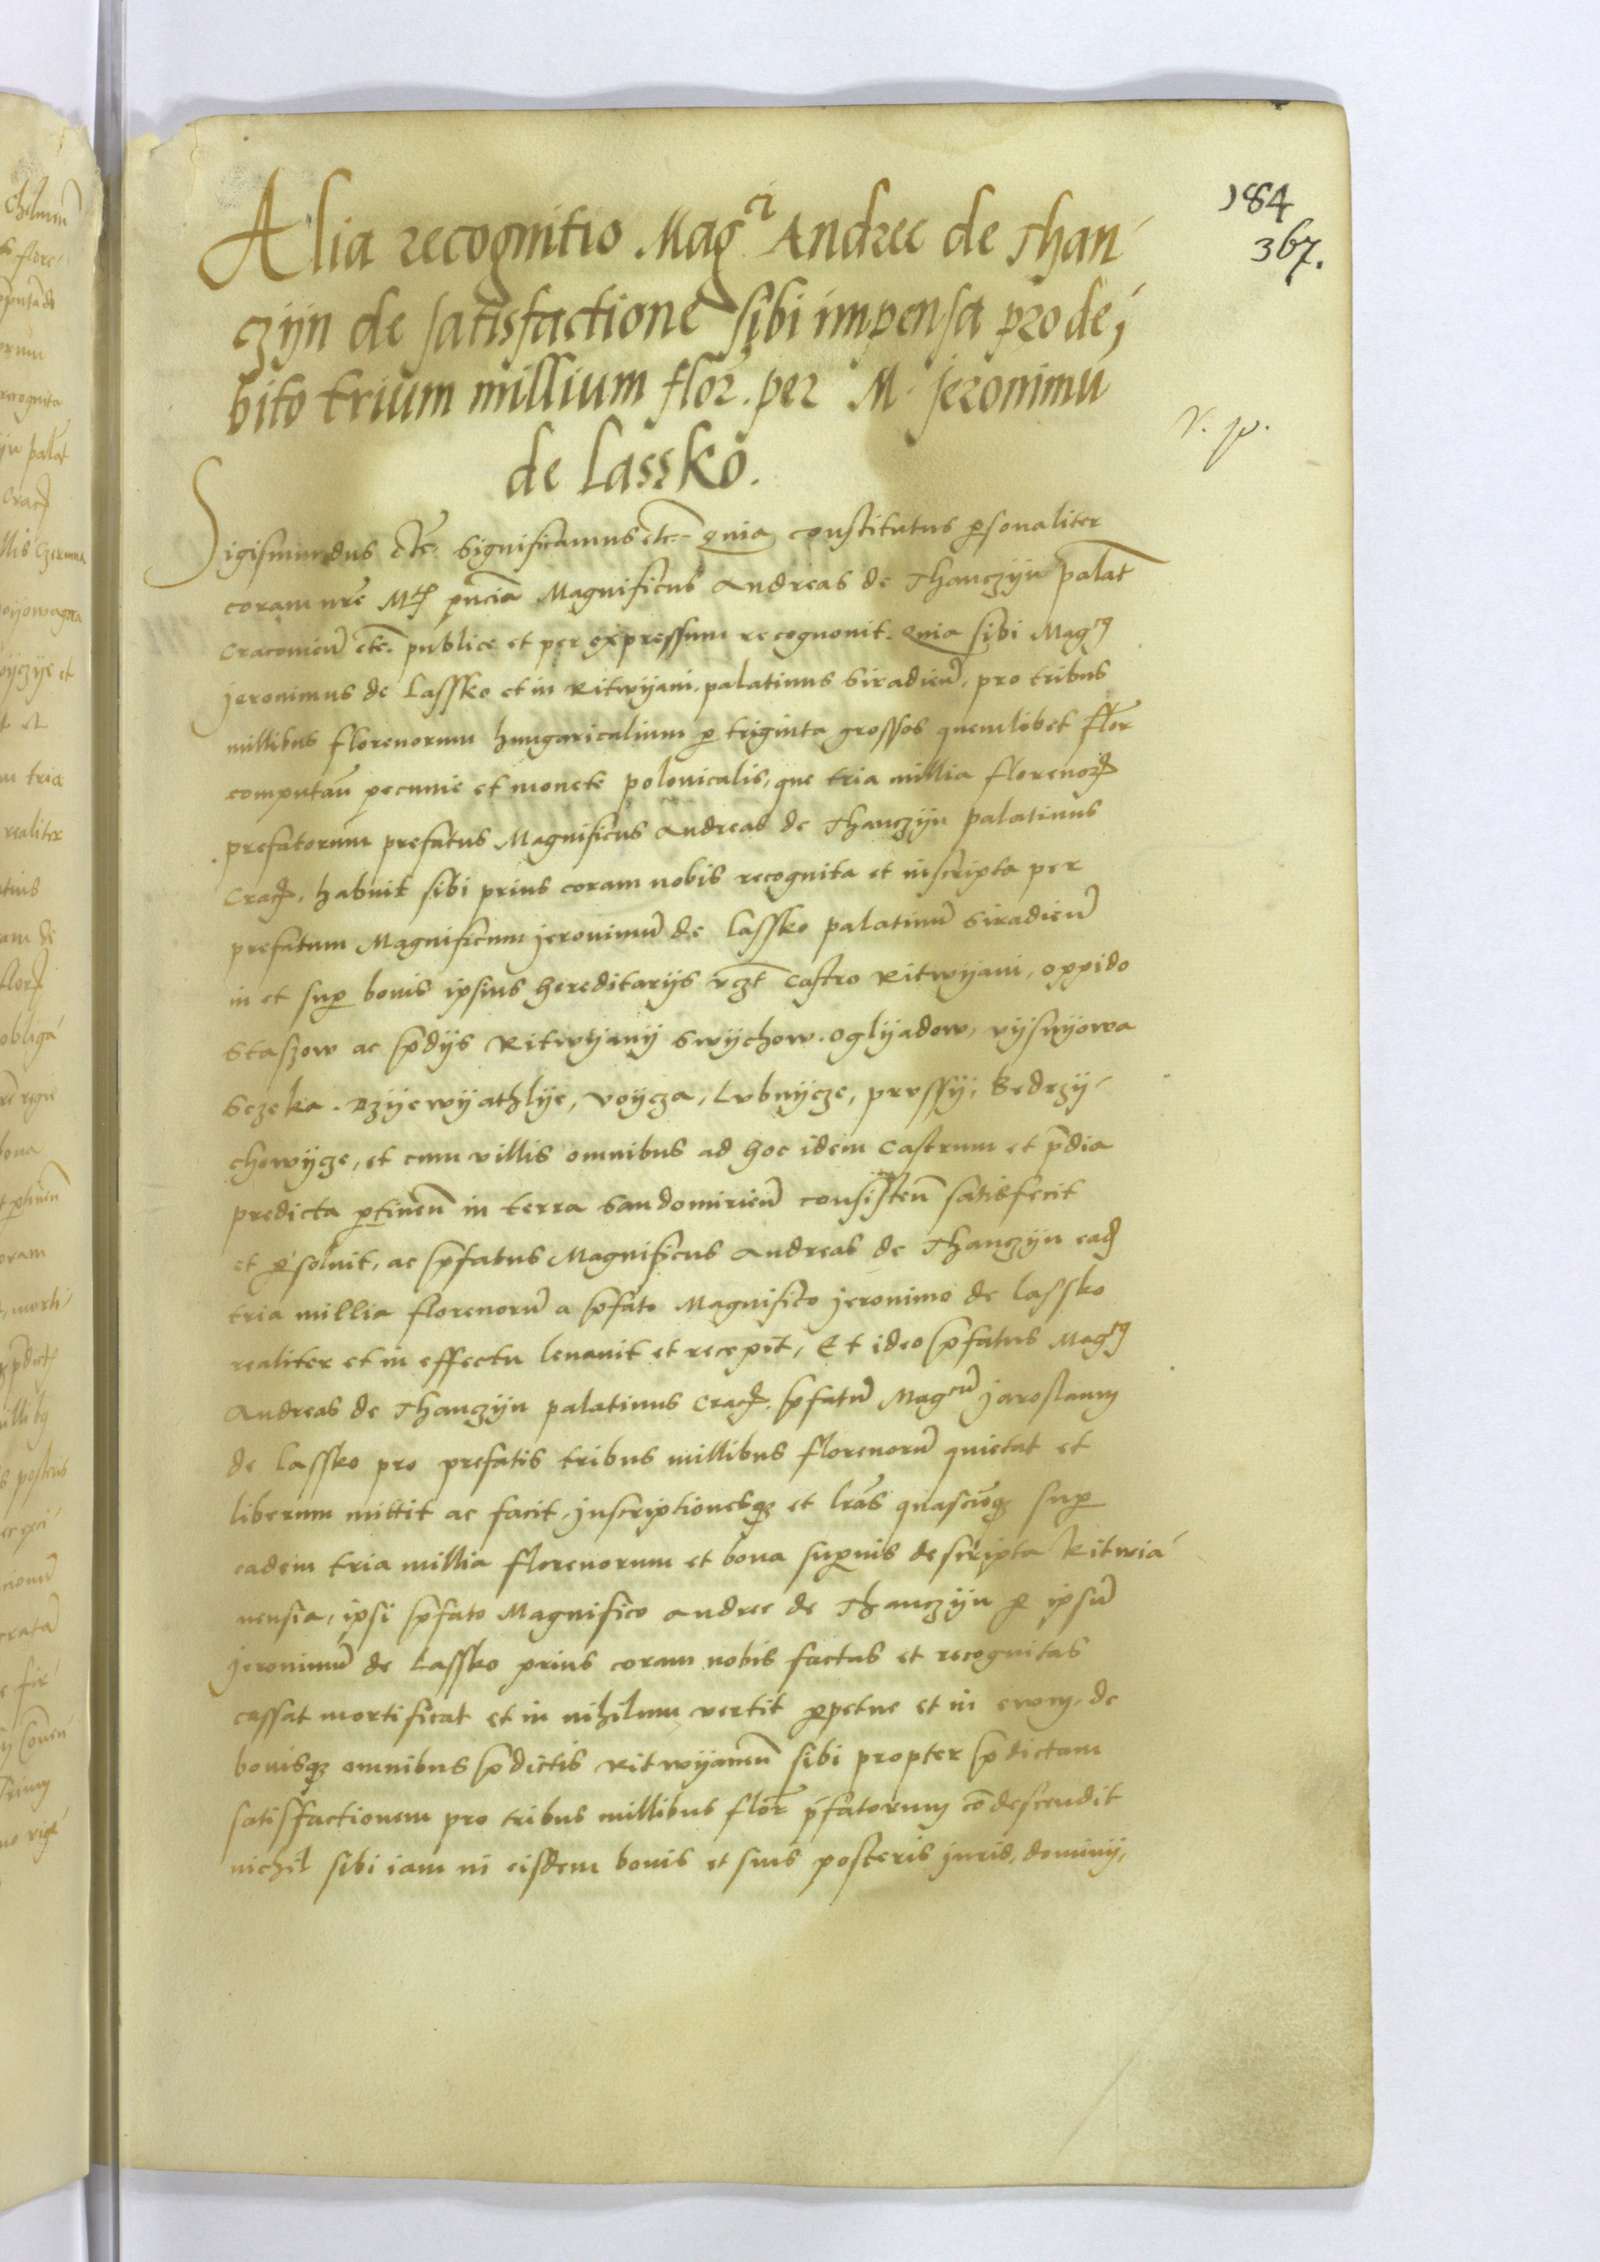 184
367.
Alia recognitio Mag^ci Andree de Than-
czÿn de satisfactione sibi impensa pro de,
bito trium millium flor. per M. Jeronimū
de Lassko.
V. p.
Sigismundus etc̄. Significamus etc̄. Quia constitutus p̱sonaliter
coram nr̄e Mtꝭ pn̄cia Magnificus Andreas de Thanczÿn palat̄
Cracovien̄ etc̄. publice et per expressum recognovit. Quia sibi Mag^cꝰ
Jeronimus de Lassko et in Ritwÿani palatinus Siradien̄, pro tribus
millibus florenorum hungaricalium p̱ triginta grossos quemlibet flor̄
computan̄ pecunie et monete polonicalis, que tria millia florenorꝝ
prefatorum prefatus Magnificus Andreas de Thanczÿn palatinus
Cracꝭ. habuit sibi prius coram nobis recognita et inscripta per
prefatum Magnificum Jeronimū de Lassko palatinū Siradien̄
in et sup̱ bonis ipsius hereditarÿs vczt̄ Castro Ritwÿani, oppido
Staszow ac p̄dÿs Ritwÿanÿ Swÿchow. Oglÿadow, vÿsnÿowa
Sczeka. Dzÿewÿathlÿe, Voÿcza, Lubnÿcze, prussÿ, Sedzÿ-
chowÿcze, et cum villis omnibus ad hoc idem Castrum et p̄dia
predicta p̱tinen̄ in terra Sandomirien̄ consisten̄ satisfecit
et p̱solvit, ac p̄fatus Magnificus Andreas de Thanczÿn eadꝭ
tria millia florenorū a p̄fato Magnifico Jeronimo de Lassko
realiter et in effectu levavit et recepit, Et ideo p̄fatus Mag^cꝰ
Andreas de Thanczÿn palatinus Cracꝭ. p̄fatū Mag^cū Jaroslaum
de Lassko pro prefatis tribus millibus florenorū quietat et
liberum mittit ac facit, Inscriptionesqꝫ et lrās quascūqꝫ sup̱
eadem tria millia florenorum et bona sup̱ius descripta Ritwia-
nensia, ipsi p̄fato Magnifico Andree de Thanczÿn p̱ ipsū
Jeronimū de Lassko prius coram nobis factas et recognitas
cassat mortificat et in nihilum vertit p̱petue et in evum, de
bonisqꝫ omnibus p̄dictis Ritwÿanen̄ sibi propter p̄dictam
satisfactionem pro tribus millibus flor̄ p̄fatorum cōdescendit
nichil sibi iam in eisdem bonis et suis posteris juris, dominÿ,